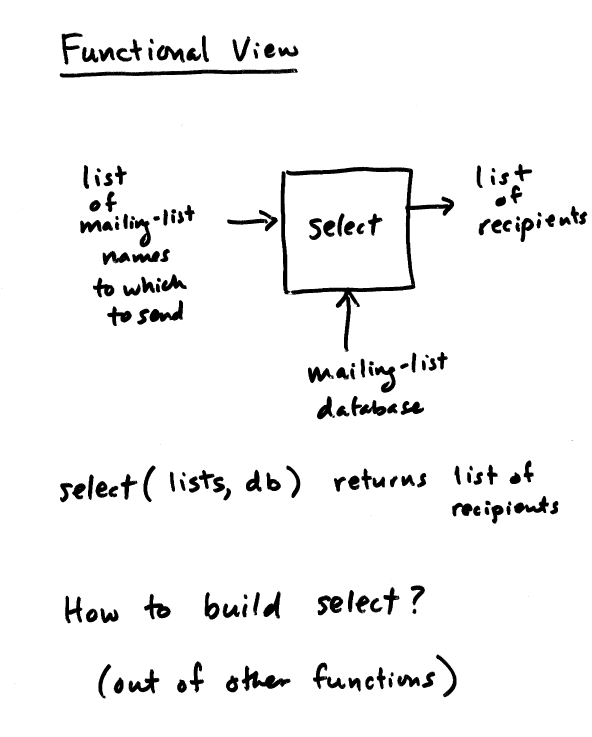 Functional View
list
of
mailing-list
names
to which
to send
select
list
of
recipients
mailing-list
database
select(lists, db) returns list of
recipients
How to build select?
(out of other functions)